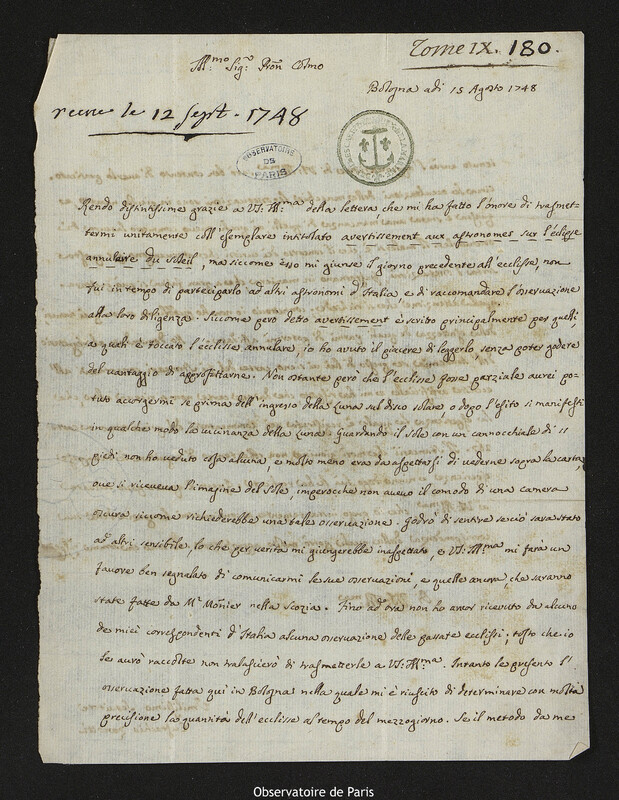 Tome IX. 180.
Ill.mo Sig.r Pron Colmo
Bologna adi 15 Agosto 1748
recue le 12 Sept. 1748
OBSERVATOIRE
DE
PARIS
Rendo distintissime grazie a VS: Ill:ma della lettera che mi ha fatto l'onore di trasmet-
termi unitamente coll'esemplare intitolato avertissement aux astronomes sur l'éclipse
annulaire du soleil, ma siccome esso mi giunse il giorno precedente all'ecclisse, non
fui in tempo di parteciparlo ad altri astronomi d'Italia, e di raccomandare l'osservazione
alla loro diligenza. Siccome però detto avertissement è scritto principalmente per quelli,
a quali è toccato l'ecclisse annulare, io ho avuto il piacere di leggerlo senza poter godere
del vantaggio di approfittarne. Non ostante però che l'ecclisse fosse parziale aurei po-
tuto accorgermi se prima dell'ingresso della Luna sul disco solare, o dopo l'esito si manifesti
in qualche modo la vicinanza della Luna. Guardando il sole con un cannocchiale di 11
piedi non ho veduto cosa alcuna, e molto meno era da aspettarsi di vederne sopra la carta,
ove si riceveva l'imagine del sole, imperocche non avevo il comodo di una camera
oscura siccome richiederebbe una tale osservazione. Godrò di sentire se ciò sarà stato
ad altri sensibile, lo che per verità mi giungerebbe inaspettato, e VS: Ill:ma mi farà un
favore ben segnalato di comunicarmi le sue osservazioni, e quelle ancora, che saranno
state fatte da Mr Monier nella Scozia. Fino ad ora non ho avor ricevuto da alcuno
de miei correspondenti d'Italia alcuna osservazione delle passate ecclissi; tosto che io
le aurò raccolte non tralascierò di trasmetterle a VS: Ill:ma. Intanto le presento l'
osservazione fatta qui in Bologna nella quale mi è riuscito di determinare con molta
precisione la quantità dell'ecclisse al tempo del mezzogiorno. Se il metodo da me
Observatoire de Paris